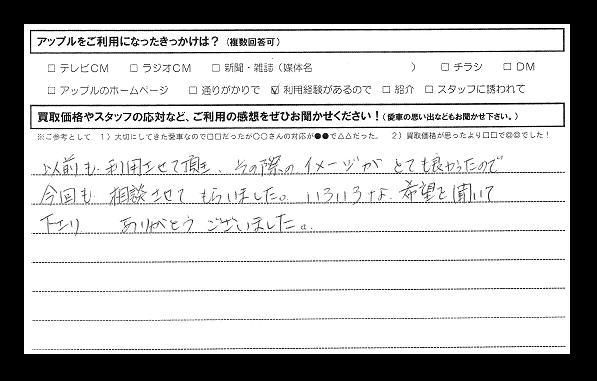 アップルをご利用になったきっかけは？（複数回答可）
□ テレビCM □ ラジオCM □ 新聞・雑誌（媒体名 ） □ チラシ □ DM
□ アップルのホームページ □ 通りがかりで ☑ 利用経験があるので □ 紹介 □ スタッフに誘われて
買取価格やスタッフの応対など、ご利用の感想をぜひお聞かせください！（愛車の思い出などもお聞かせ下さい。）
※ご参考として 1）大切にしてきた愛車なので□□だったが○○さんの対応が●●で△△だった。 2）買取価格が思ったより□□で◎◎でした！
以前も利用させて頂き、その際のイメージがとても良かったので
今回も相談させてもらいました。いろいろな希望を聞いて
下さり ありがとうございました。